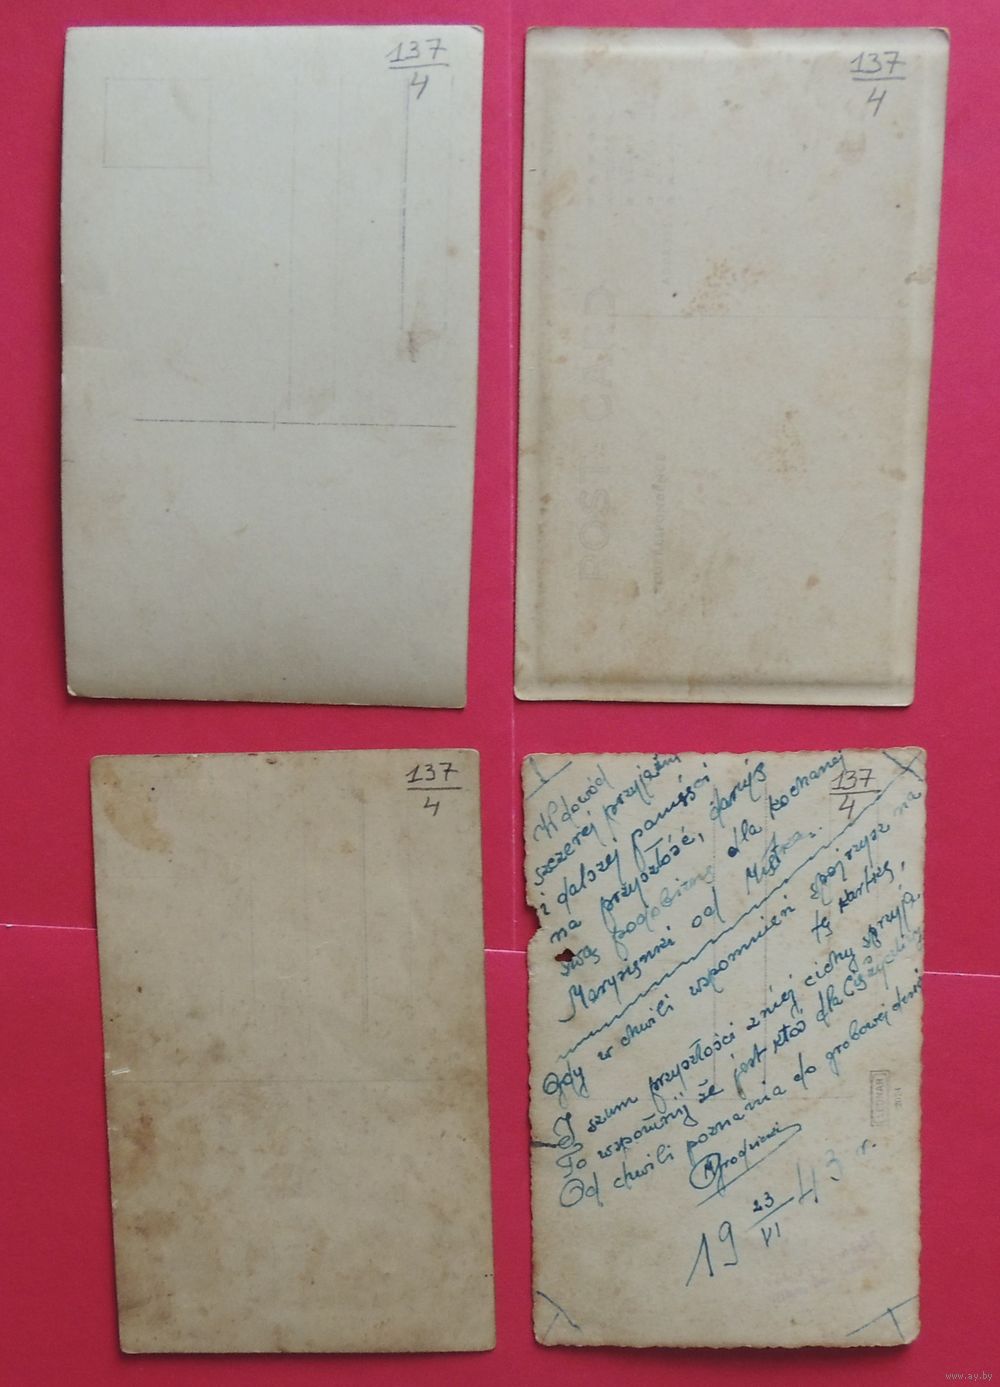 137
4
137
4
POST CARD
CORRESPONDENCE
137
4
137
4
W dowód
szczerej przyjaźni
i dalszej pamięci
na przyszłość, daruję
swą podobiznę dla kochanej
Marysieńki od Mietka.
Gdy w chwili wspomnień spojrzysz na
tę kartkę,
I szum przyszłości z niej cichy sprzyja.
To wspomnij że jest ktoś dla Cię życzliwy
Od chwili poznania do grobowej deski
19 23/VI 43 r.
LEONAR
www.ay.by